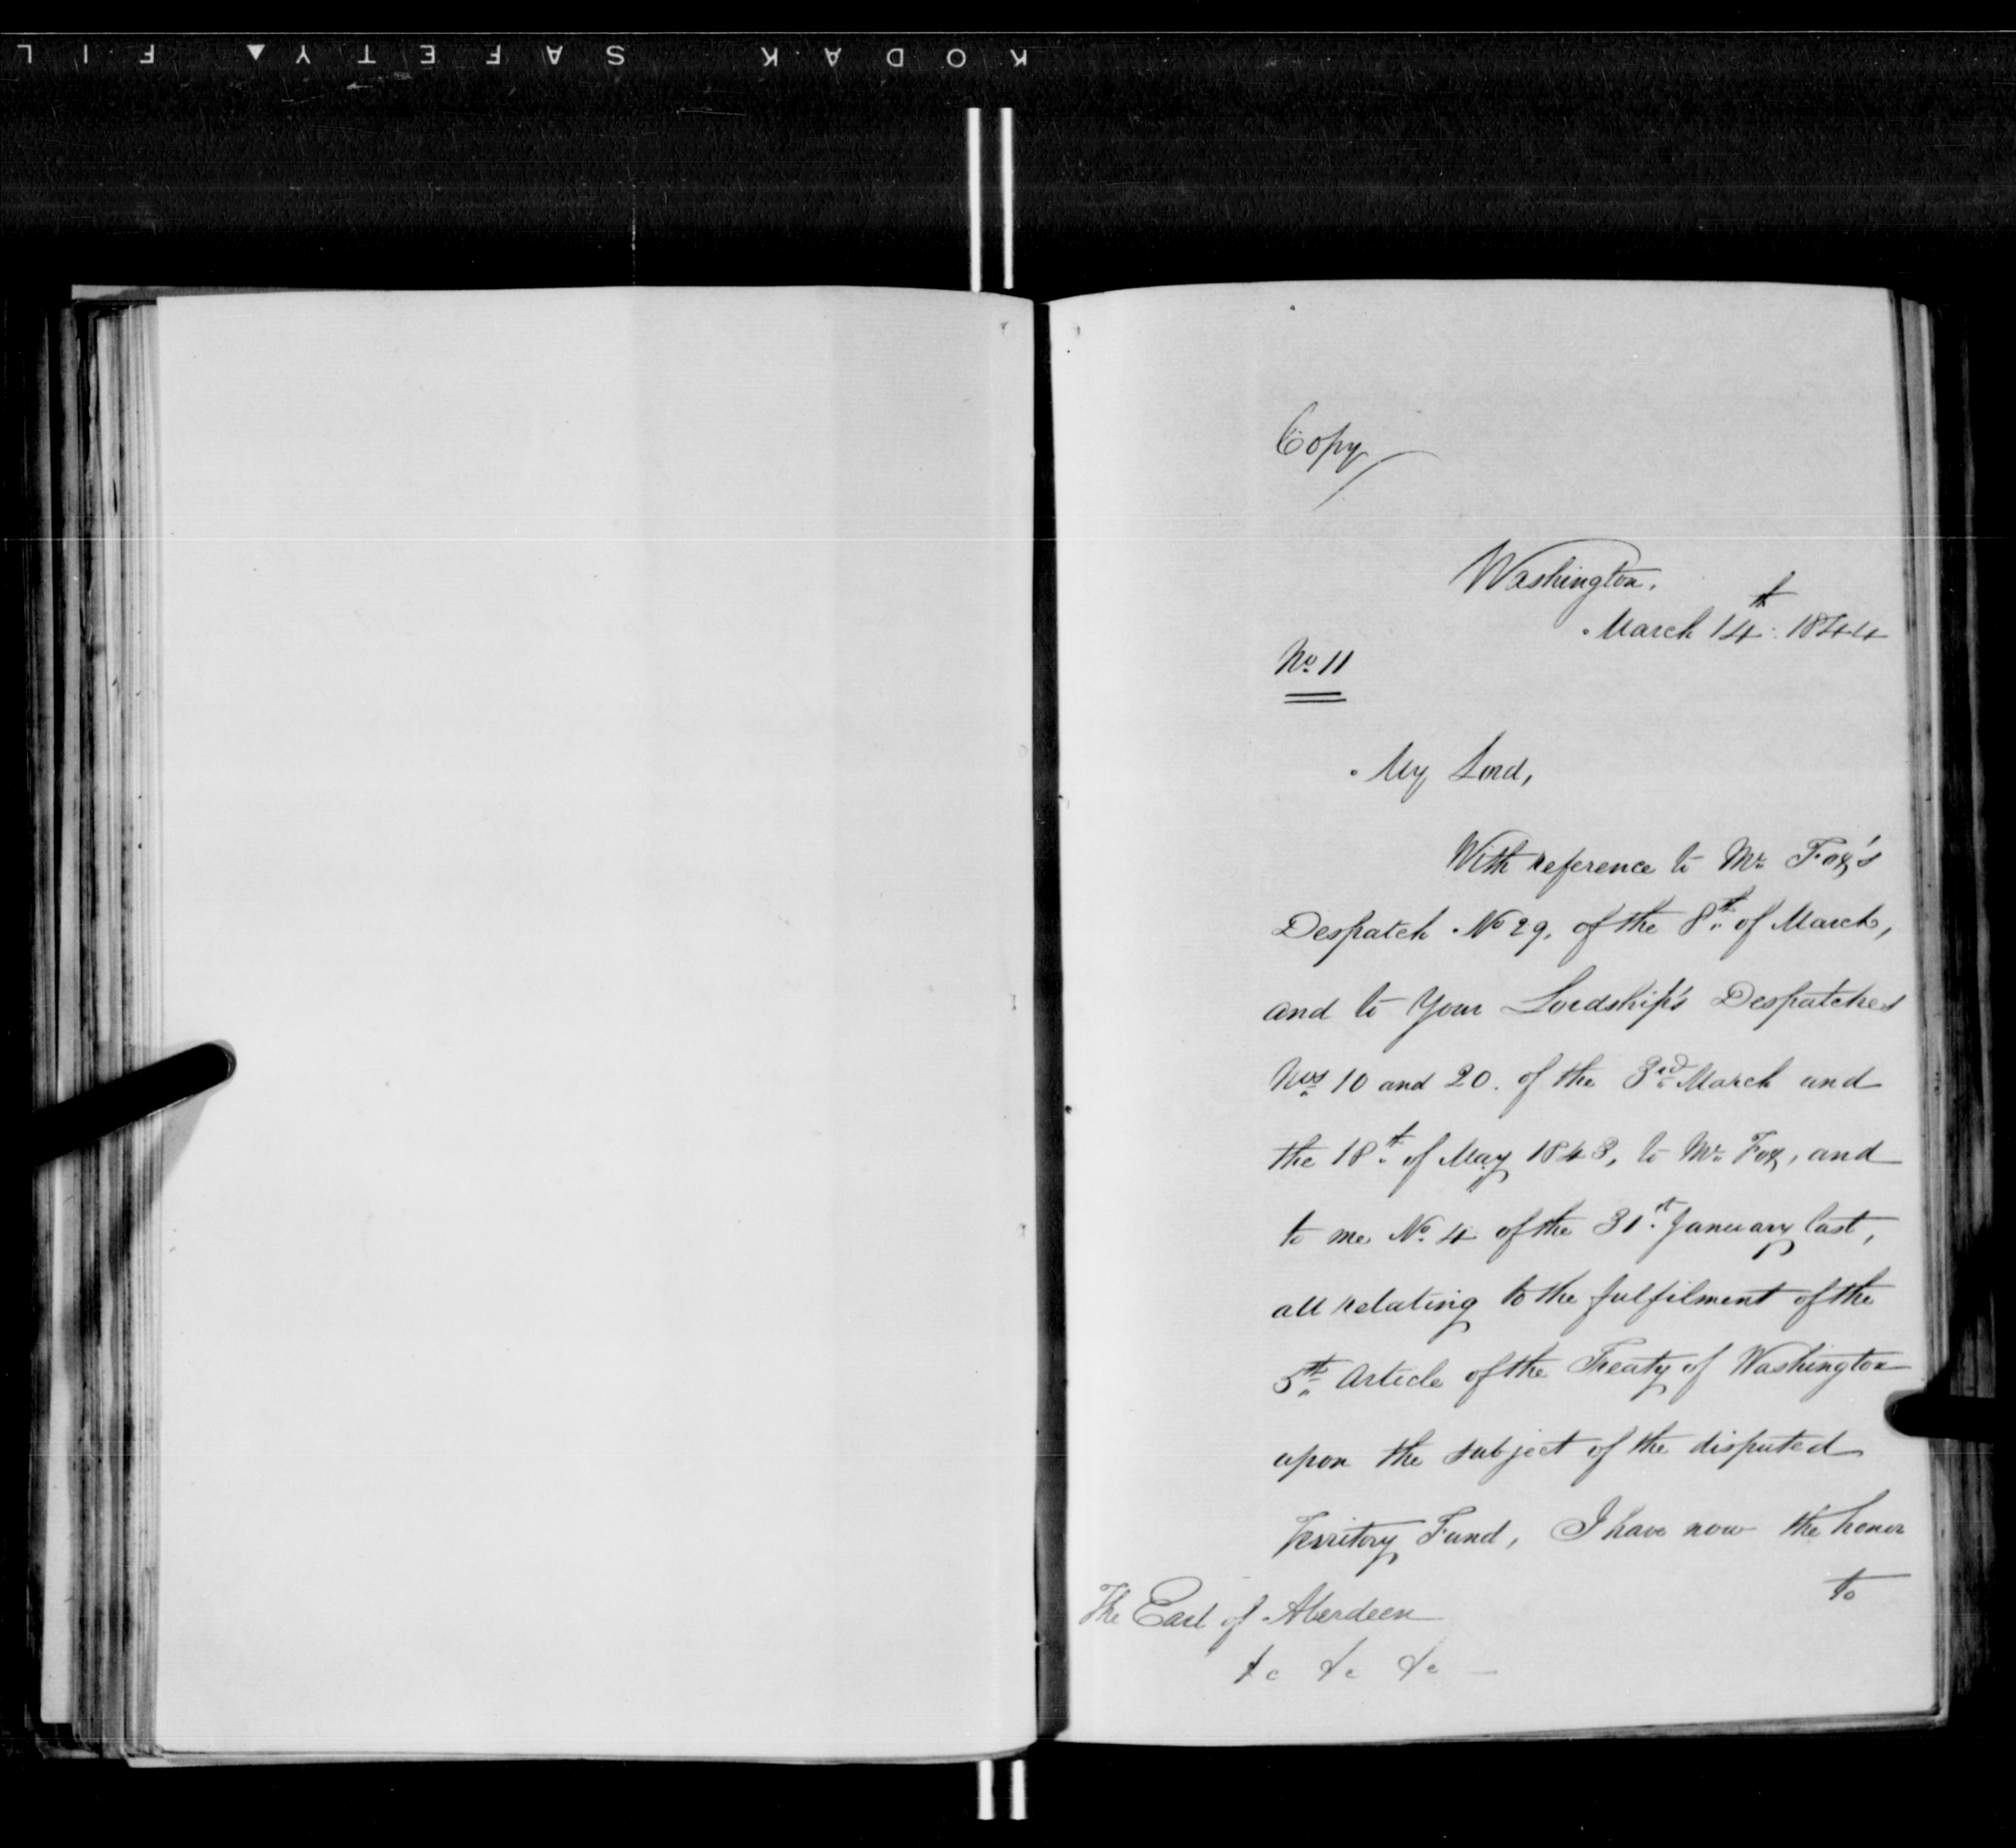 KODAK SAFETY FIL
Copy
Washington.
March 14th 1844
No 11
My Lord,
With reference to Mr Fox's
Despatch No 29, of the 8th of March,
and to Your Lordship's Despatches
Nos 10 and 20. of the 3rd March and
the 18th of May 1843, to Mr Fox, and
to me No 4 of the 31st January last,
all relating to the fulfilment of the
5th Article of the Treaty of Washington
upon the subject of the disputed
Territory Fund, I have now the honor
to
The Earl of Aberdeen
&c &c &c